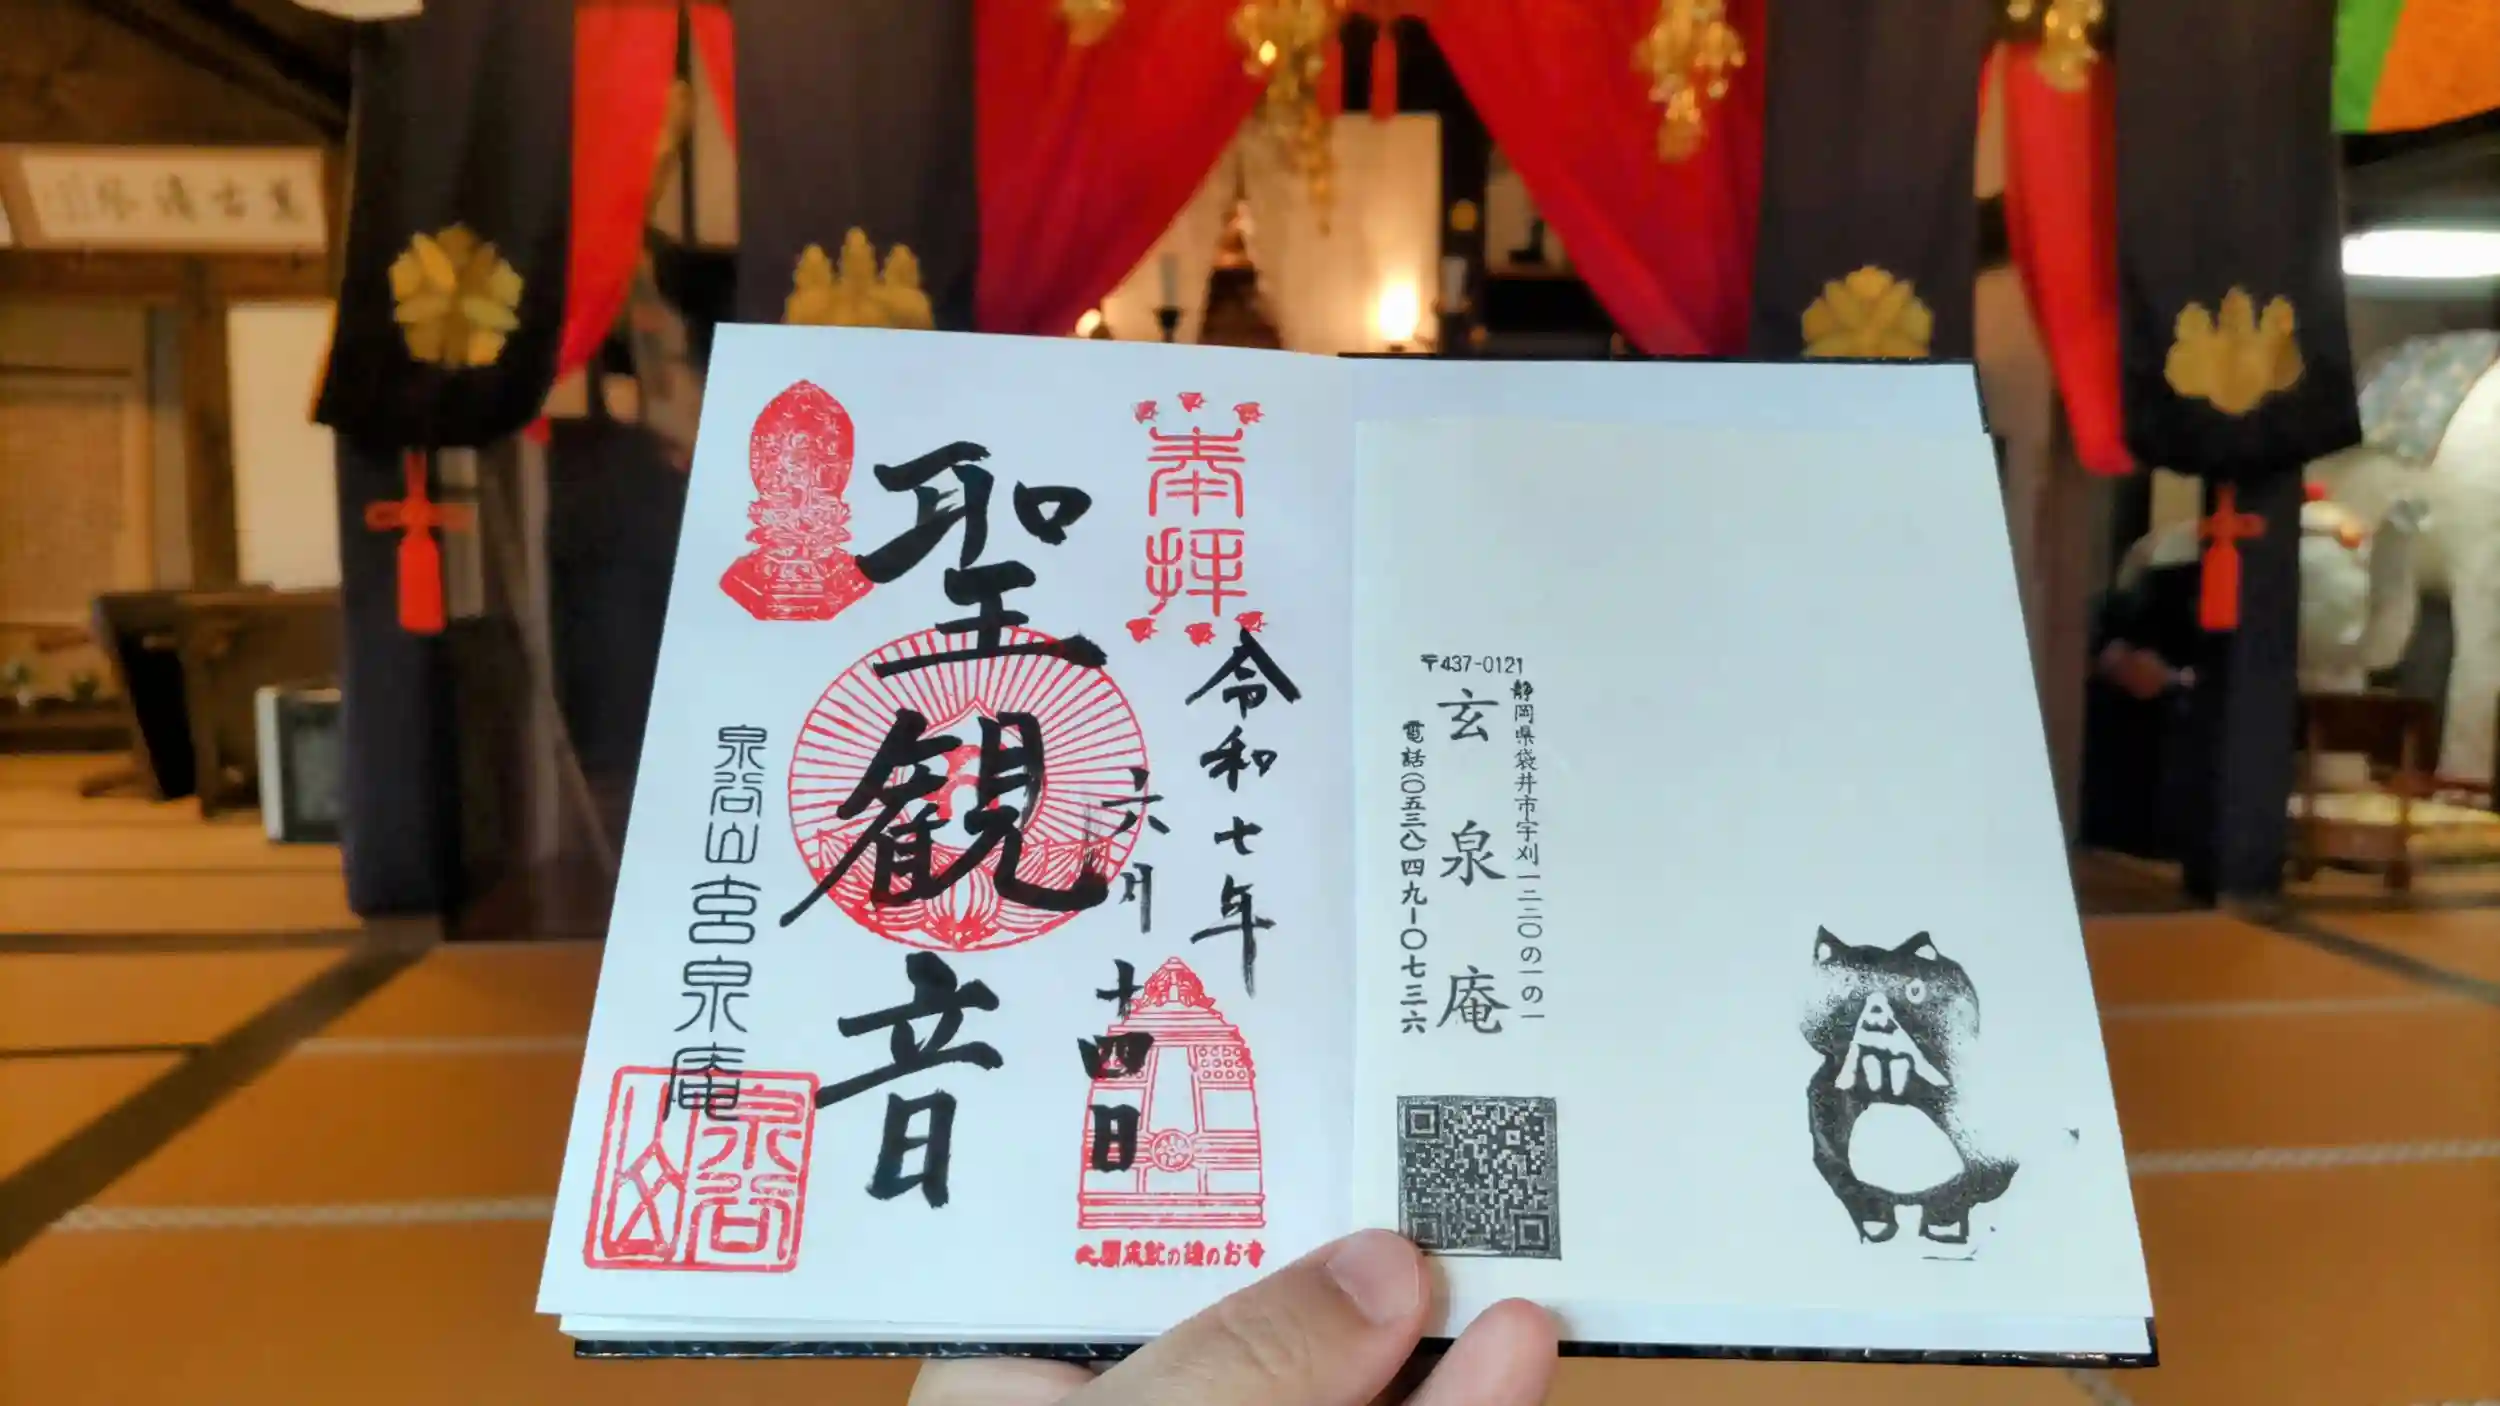 奉拝
令和七年
六月
十四日
聖観音
泉谷山玄泉庵
泉谷山
心願成就の鐘のお寺
〒437-0121
静岡県袋井市宇刈一二二〇の一の一
玄泉庵
電話(〇五三八)四九-〇七三六